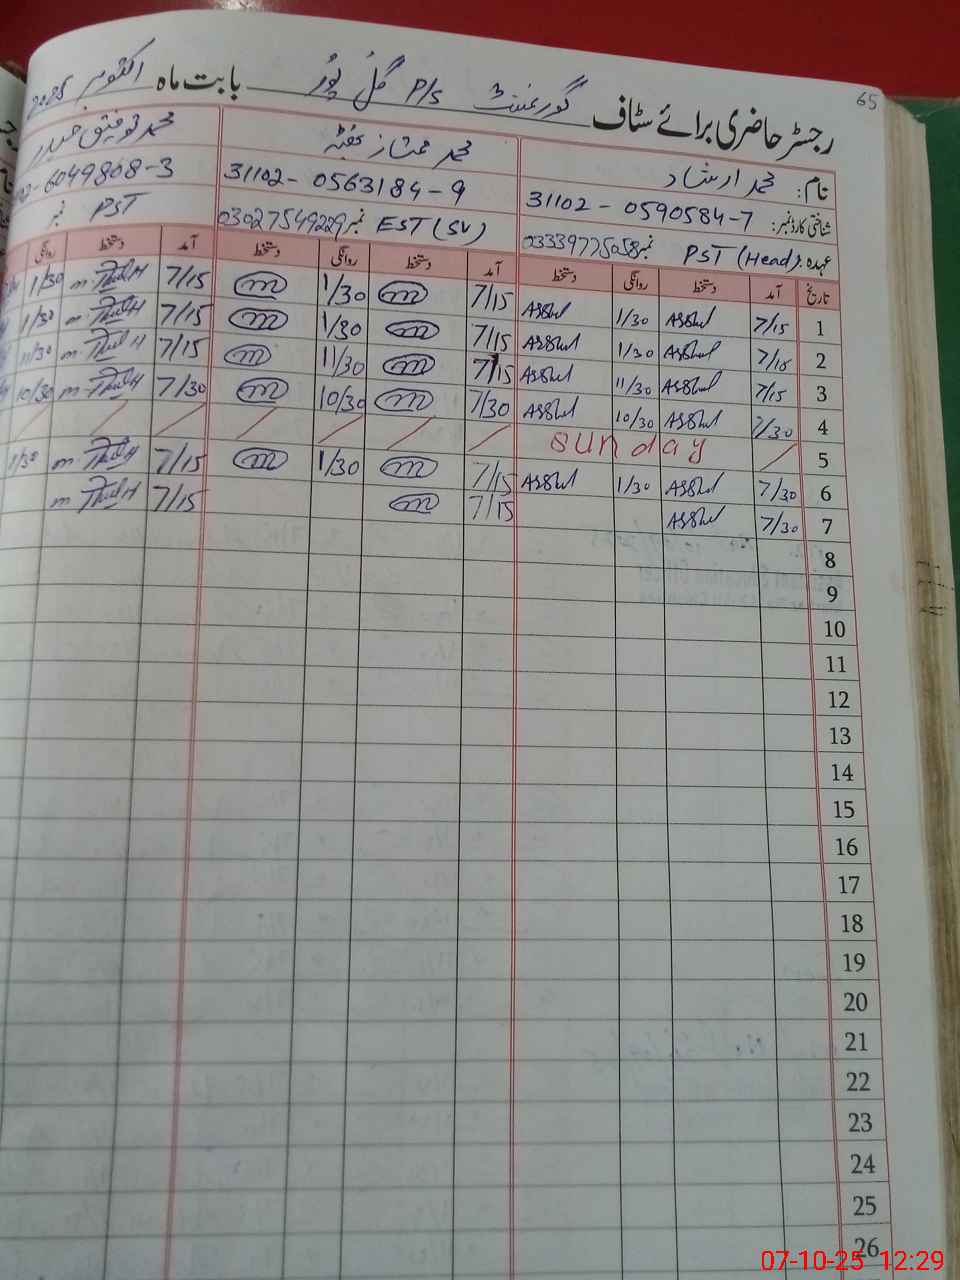 65
رجسٹر حاضری برائے سٹاف گورنمنٹ P/S گل پور بابت ماہ اکتوبر 2025
نام: محمد ارشاد محمد ممتاز محمد توفیق حیدر
شناختی کارڈ نمبر: 31102 - 0590584-7 31102 - 0563184-9 02-6049808-3
عہدہ: PST (Head) نمبر 03339775058 EST (SV) نمبر 03027549229 PST نمبر
تاریخ آمد دستخط روانگی دستخط آمد دستخط روانگی دستخط آمد دستخط روانگی
1 7/15 Asshd 1/30 Asshd 7/15 m 1/30 m 7/15 1/30
2 7/15 Asshd 1/30 Asshd 7/15 m 1/30 m 7/15 1/30
3 7/15 Asshd 11/30 Asshd 7/15 m 11/30 m 7/15 11/30
4 7/30 Asshd 10/30 Asshd 7/30 m 10/30 m 7/30 10/30
5 sunday
6 7/30 Asshd 1/30 Asshd 7/15 m 1/30 m 7/15 1/30
7 7/30 Asshd 7/15 m 7/15
8
9
10
11
12
13
14
15
16
17
18
19
20
21
22
23
24
25
26
07-10-25 12:29